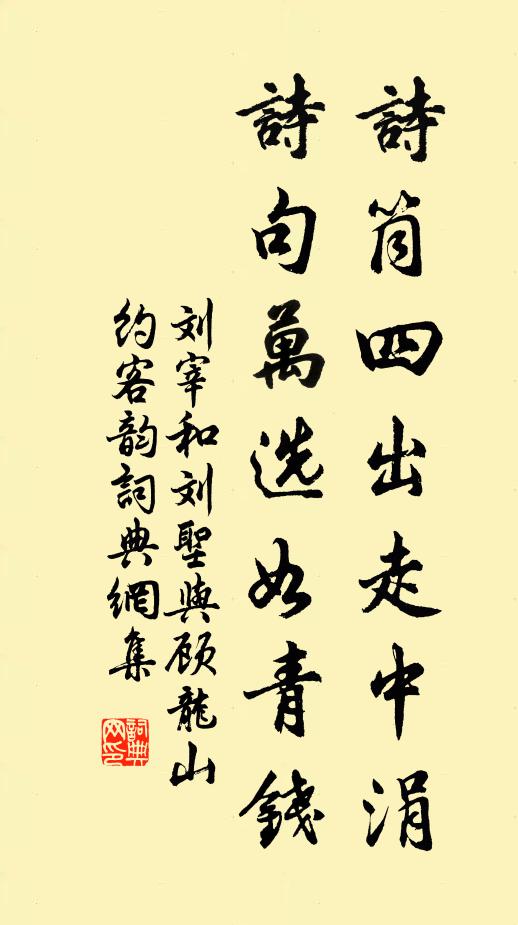 詩筒四出走中涓
詩句萬选如青錢
刘宰和刘聖與顾龍山
约客韵詞典網集
詞典
网印